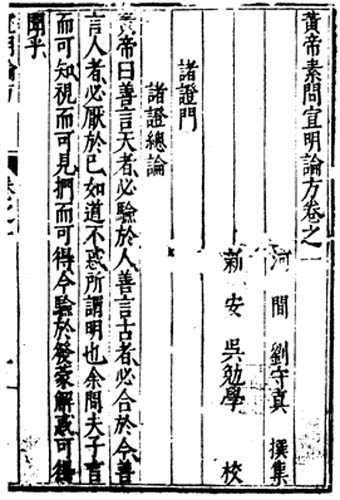 黃帝素問宣明論方卷之一
河間 劉守真 撰集
新安 吳勉學 校
諸證門
諸證總論
黃帝曰善言天者必驗於人善言古者必合於今善
言人者必厭於已如道不惑所謂明也余問夫子言
而可知視而可見捫而可得令驗於發蒙解惑可得
聞乎